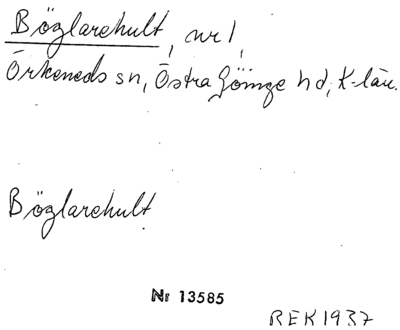 Böglarehult, nr 1,
Örkeneds sn, Östra Göinge hd, K-län.
Böglarehult
Nr 13585
REK 1937